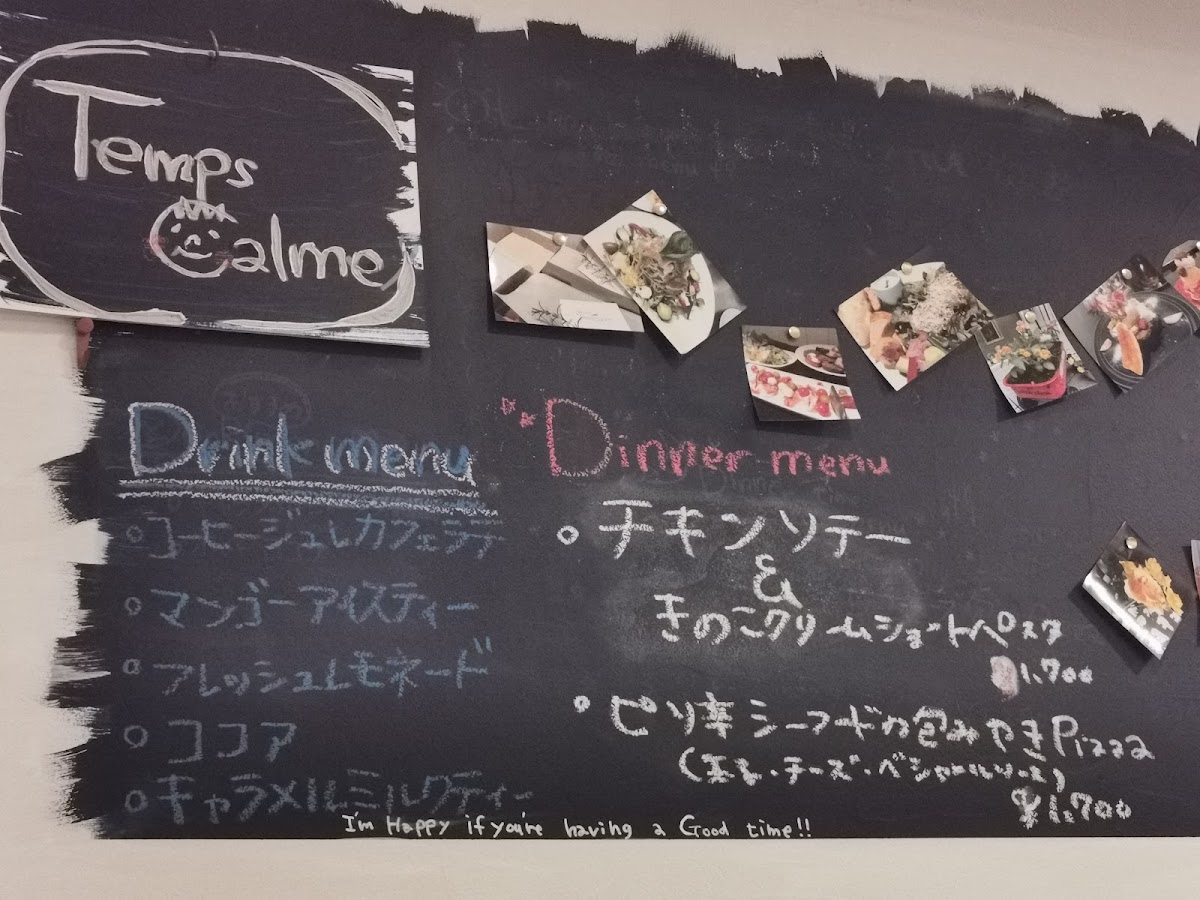 Temps
Calme
Drink menu
。コーヒージュレカフェラテ
。マンゴーアイスティー
。フレッシュレモネード
。ココア
。キャラメルミルクティー
Dinner menu
。チキンソテー
&
きのこクリームショートパスタ
1,700
。ピリ辛シーフードの包みやきPizza
(玉子・チーズ・ベシャメルソース)
¥1,700
I'm Happy if you're having a Good time!!